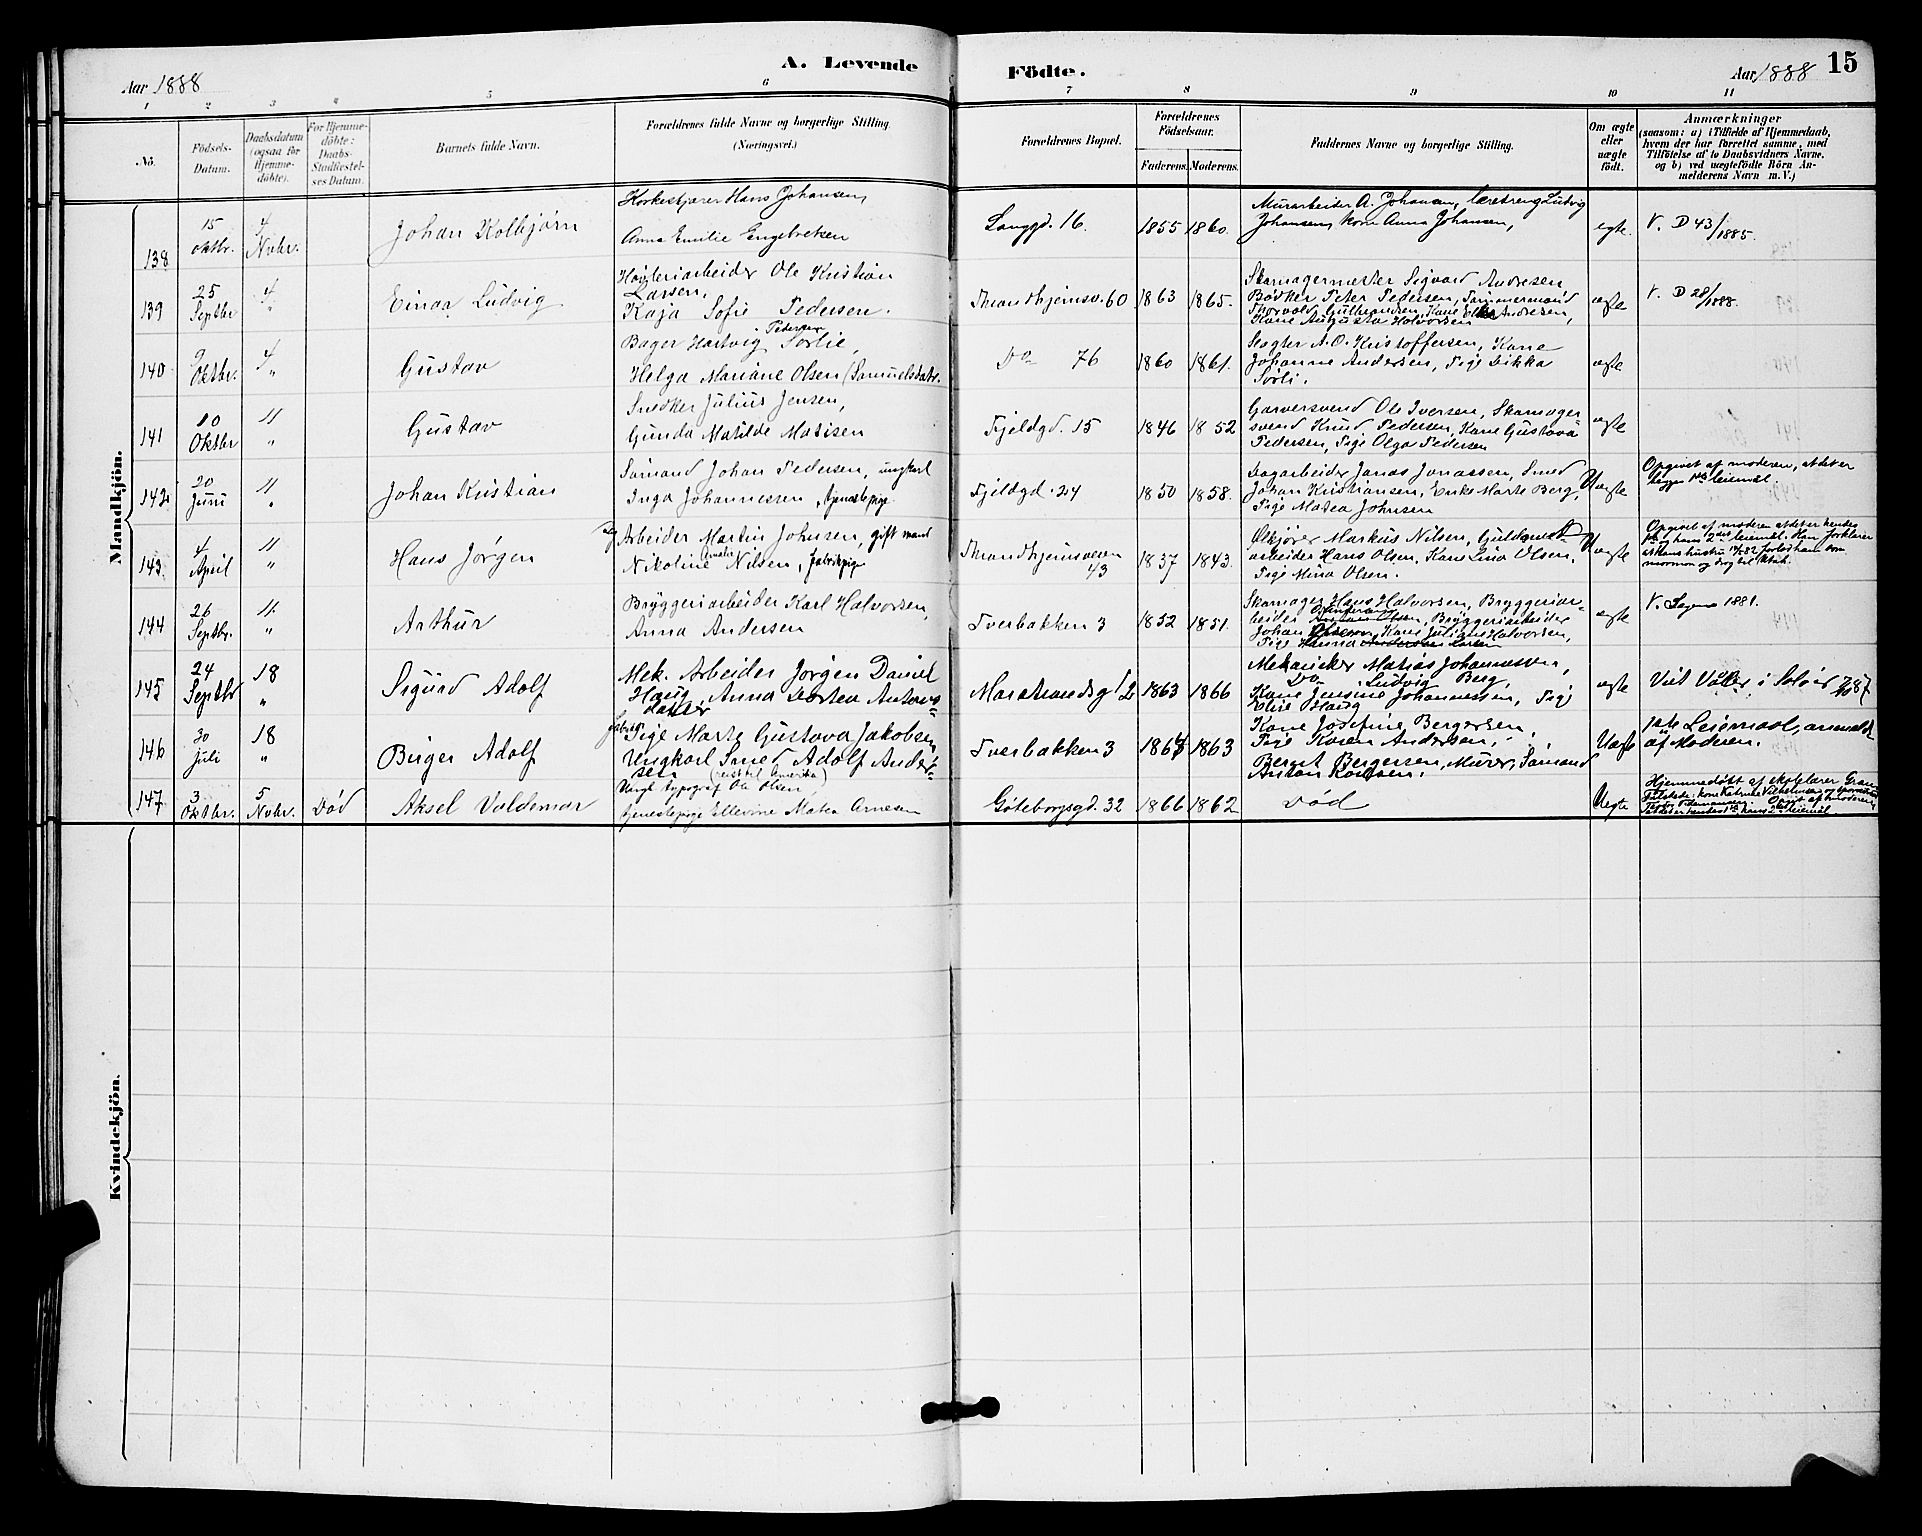 Aar 1888
A. Levende
Födte.
Aar 1888
15
1 2 3 4 5 6 7 8 9 10 11
No.
Födsels-Datum.
Daabsdatum (ogsaa for Hjemme-döbte).
For Hjemme-döbte: Daabs-Stadfæstel-ses Datum.
Barnets fulde Navn.
Forældrenes fulde Navne og borgerlige Stilling.
(Næringsvei.)
Forældrenes Bopæl.
Forældrenes Födselsaar.
Faderens. Moderens.
Faddernes Navne og borgerlige Stilling.
Om ægte eller uægte födt.
Anmærkninger
(saasom: a) i Tilfælde af Hjemmedaab,
hvem der har forrettet samme, med
Tilföielse af to Daabsvidners Navne,
og b) ved uægtefödte Börn An-
melderens Navn m. V.)
Mandkjön.
138
15 oktbr.
4 Novbr.
Johan Kolbjørn
Hans Johansen,
Anna Emilie Engebretsen
Langgd. 16.
1855 1860.
Murarbeider A. Johansen, Ludvig
Johansen, kone Anna Johansen,
egte.
V. D 43/1885.
139
25 Septbr
4 "
Einar Ludvig
Ole Kristian
Larsen,
Kaja Sofie Pedersen.
Trondhjemsv. 60
1863 1865.
Skomagermester Sigvard Andresen,
Bödker Peter Pedersen, Tømmermand
Thorvald Gulbrandsen, Kone Andresen,
Kone Augusta Halvorsen
ægte
V. D 28/1888.
140
9 Oktbr.
4 "
Gustav
Bager Hartvig Pedersen Sørlie,
Helga Mariane Olsen (Samuelsdatr.
Do 76
1860 1861.
Slagter A. O. Kristoffersen, Kone
Johanne Andersen, Pige Rikka
Sørli.
ægte
141
10 Oktbr
11 "
Gustav
Snedker Julius Jensen,
Gunda Matilde Matisen
Fjeldgd. 15
1846 1852
Garversvend Ole Iversen, Skomager
svend Knud Pedersen, Kone Gustava
Pedersen, Pige Olga Pedersen
ægte
142
20 Juni
11 "
Johan Kristian
Sømand Johan Pedersen, ungkarl
Inga Johannessen, tjenestepige
Fjeldgd. 24
1850 1858.
Dagarbeider Jonas Jonassen, Smed
Johan Kristiansen, Enke Marte Berg,
Pige Matea Johnsen
Uægte
Opgivet af moderen, at det er
begges 1ste leiemål.
143
4 April
11 "
Hans Jørgen
Arbeider Martin Johnsen, gift mand
Nikoline Nilsen, fabrikpige
Trondhjemsveien
43
1837 1843.
Ølkjører Markus Nilsen,
arbeider Hans Olsen, Kone Lina Olsen,
Pige Mina Olsen.
Uægte
Opgivet af moderen at det er hendes
og hans 2det leiemål. Han forklarer
at hans hustru forlod ham som
mormon og drog til Utah.
144
26 Septbr.
11 "
Arthur
Bryggeriarbeider Karl Halvorsen,
Anna Andersen
Tverbakken 3
1852 1851.
Skomager Hans Halvorsen, Bryggeriar-
beider Olsen, Bryggeriarbeider
Johan Kone Juliane Halvorsen,
Pige Hanna
ægte
V. 1881.
145
24 Septbr
18 "
Sigurd Adolf
Mek. Arbeider Jörgen Daniel
Haug, Anna Dortea Antons-
datter
Marstrandsg 12
1863 1866
Mekaniker Matias Johannessen,
Do Ludvig Berg,
Kone Jensine Johannessen, Pige
Elise Haug
ægte
Viet Våler i Solør 7/10 87
146
30 Juli
18 "
Birger Adolf
Pige Marte Gustava Jakobsen
Ungkarl Smed Adolf Ander-
sen (reist til Amerika)
Tverbakken 3
1863
Kone Josefine Bergersen,
Pige Karen Andersen,
Bernt Bergersen, Murer, Sømand
Anton
Uægte
1ste Leiermaal, anmeldt
af Moderen.
147
3 Oktbr.
5 Novbr.
Död
Aksel Valdemar
Ungk. typograf Ole Olsen,
tjenestepige Ellevine Matea Arnesen
Göteborgsgd. 32
1866 1862
Död
Uegte
Hjemmedøbt af skolelærer
kone Katrine Vilhelmsen og
Opgivet af moderen,
at det er hendes 1ste, hans 2det leiemål.
Kvindekjön.